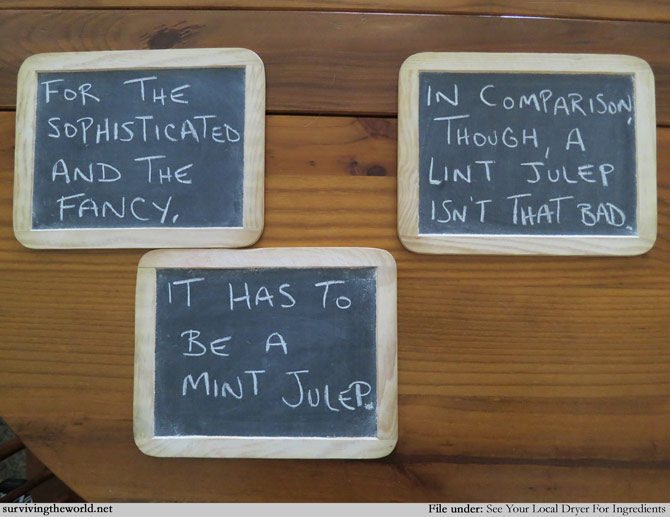 FOR THE
SOPHISTICATED
AND THE
FANCY.
IT HAS TO
BE A
MINT JULEP.
IN COMPARISON,
THOUGH, A
LINT JULEP
ISN'T THAT BAD.
survivingtheworld.net
File under: See Your Local Dryer For Ingredients